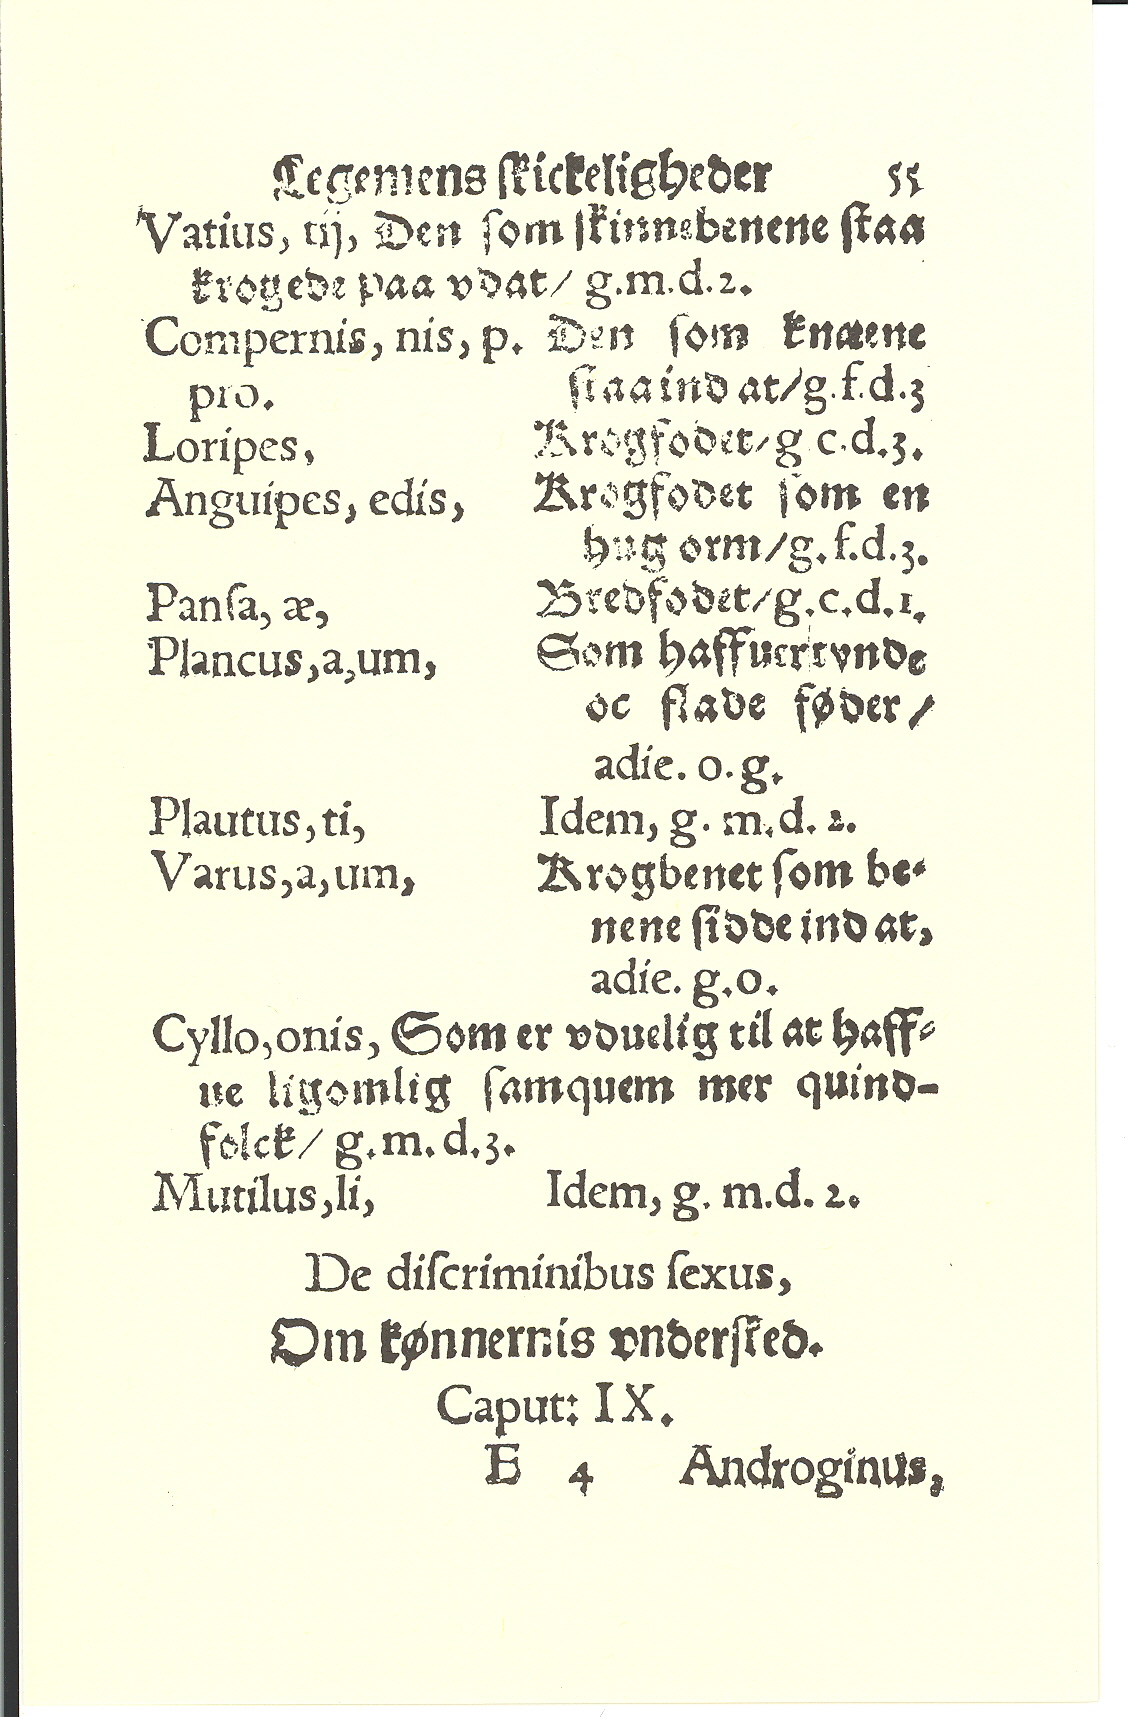 Legemens skickeligheder 55
Vatius, tij, Den som skinnebenene staa
krogede paa vdat/ g.m.d.2.
Compernis, nis, p. Den som knæene
pro. staa ind at/g.f.d.3
Loripes, Krogfodet/g c.d.3.
Anguipes, edis, Krogfodet som en
hug orm/g.f.d.3.
Panſa, æ, Bredfodet/g.c.d.1.
Plancus,a,um, Som haffuer tynde
oc flade føder/
adie. o.g.
Plautus,ti, Idem, g. m.d. 2.
Varus,a,um, Krogbenet ſom be-
nene ſidde ind at,
adie. g.o.
Cyllo,onis, Som er vduelig til at haff-
ue ligomlig ſamquem mer quind-
folck/ g.m.d.3.
Mutilus,li, Idem, g. m.d. 2.
De diſcriminibus ſexus,
Om kønnernis vnderſked.
Caput: IX.
E 4 Androginus,